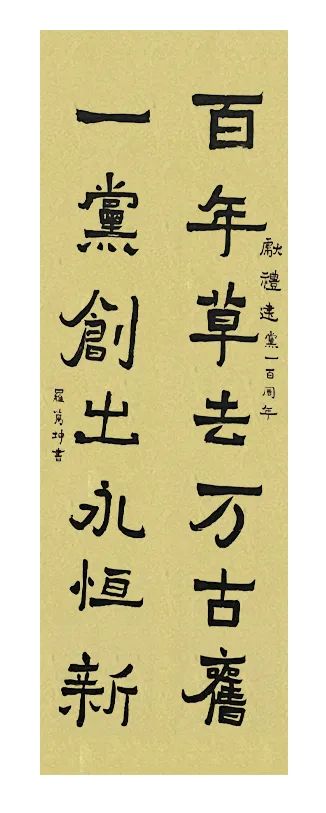 獻禮建黨一百周年
百年草去万古舊
一黨創出永恒新
羅萬坤書